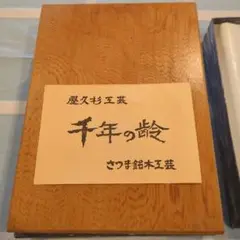 屋久杉工芸
千年の齢
さつま銘木工芸